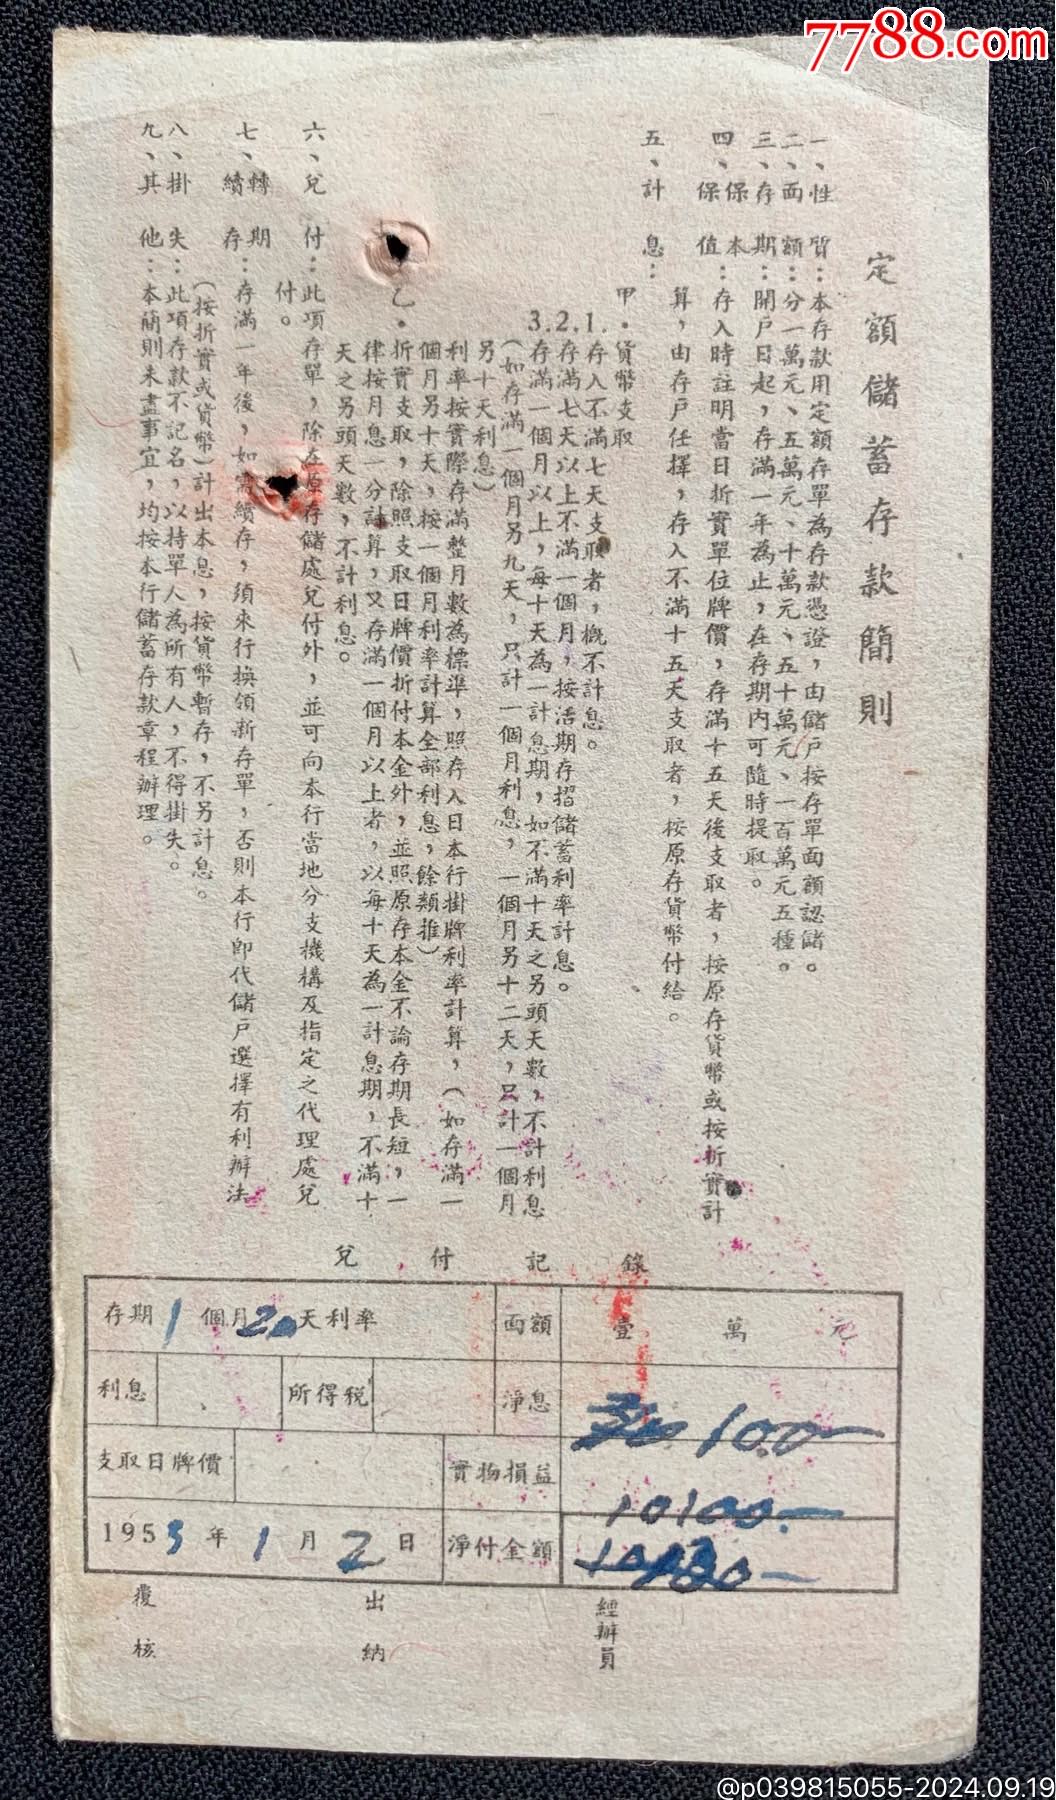 7788.com
定額儲蓄存款簡則
一、性質：本存款用定額存單為存款憑證，由儲戶按存單面額認儲。
二、面額：分一萬元、五萬元、十萬元、五十萬元、一百萬元五種。
三、存期：開戶日起，存滿一年為止，在存期內可隨時提取。
四、保本保值：存入時註明當日折實單位牌價，存滿十五天後支取者，按原存貨幣或按折實計
算，由存戶任擇，存入不滿十五天支取者，按原存貨幣付給。
五、計息：
甲．貨幣支取
1.存入不滿七天支取者，概不計息。
2.存滿七天以上不滿一個月，按活期存摺儲蓄利率計息。
3.存滿一個月以上，每十天為一計息期，如不滿十天之另頭天數，不計利息
（如存滿一個月另九天，只計一個月利息，一個月另十二天，只計一個月
另十天利息）
利率按實際存滿整月數為標準，照存入日本行掛牌利率計算，（如存滿一
個月另十天，按一個月利率計算全部利息，餘類推）
乙．折實支取，除照支取日牌價折付本金外，並照原存本金不論存期長短，一
律按月息一分計算，又存滿一個月以上者，以每十天為一計息期，不滿十
天之另頭天數，不計利息。
六、兌付：此項存單，除在原存儲處兌付外，並可向本行當地分支機構及指定之代理處兌
付。
七、轉期續存：存滿一年後，如需續存，須來行換領新存單，否則本行即代儲戶選擇有利辦法
（按折實或貨幣）計出本息，按貨幣暫存，不另計息。
八、掛失：此項存款不記名，以持單人為所有人，不得掛失。
九、其他：本簡則未盡事宜，均按本行儲蓄存款章程辦理。
兌付記錄
存期 1 個月 20 天利率 面額 壹萬元
利息 所得稅 淨息 100—
支取日牌價 實物損益 10100—
1953年1月2日 淨付金額
覆核 出納 經辦員
@p039815055-2024.09.19